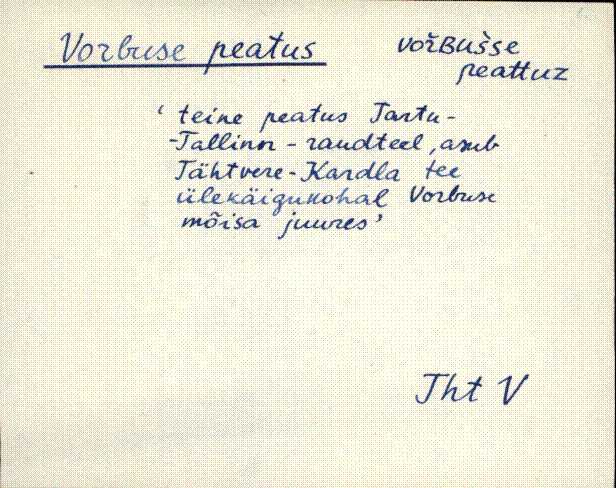 Vorbuse peatus
vořBušse
peattuz
‘teine peatus Tartu-
-Tallinn - raudteel, asub
Tähtvere-Kardla tee
ülekäigukohal Vorbuse
mõisa juures’
Tht V